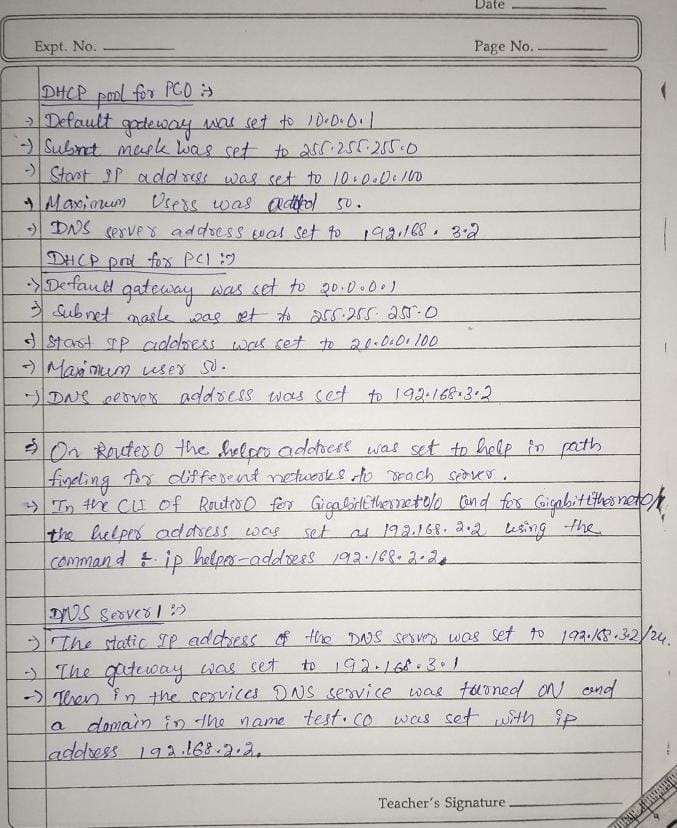 Date
Expt. No.
Page No.
DHCP pool for PC0 :→
→ Default gateway was set to 10.0.0.1
→ Subnet mask was set to 255.255.255.0
→ Start IP address was set to 10.0.0.100
→ Maximum Users was added 50.
→ DNS server address was set to 192.168.3.2
DHCP pool for PC1 :→
→ Default gateway was set to 20.0.0.1
→ Subnet mask was set to 255.255.255.0
→ Start IP address was set to 20.0.0.100
→ Maximum user 50.
→ DNS server address was set to 192.168.3.2
→ On Router0 the helper address was set to help in path
finding for different networks to reach server.
→ In the CLI of Router0 for GigabitEthernet0/0 and for GigabitEthernet0/1
the helper address was set as 192.168.2.2 using the
command : ip helper-address 192.168.2.2.
DNS Server1 :→
→ The static IP address of the DNS server was set to 192.168.3.2/24.
→ The gateway was set to 192.168.3.1
→ Then in the services DNS service was turned ON and
a domain in the name test.co was set with ip
address 192.168.2.2.
Teacher's Signature
9